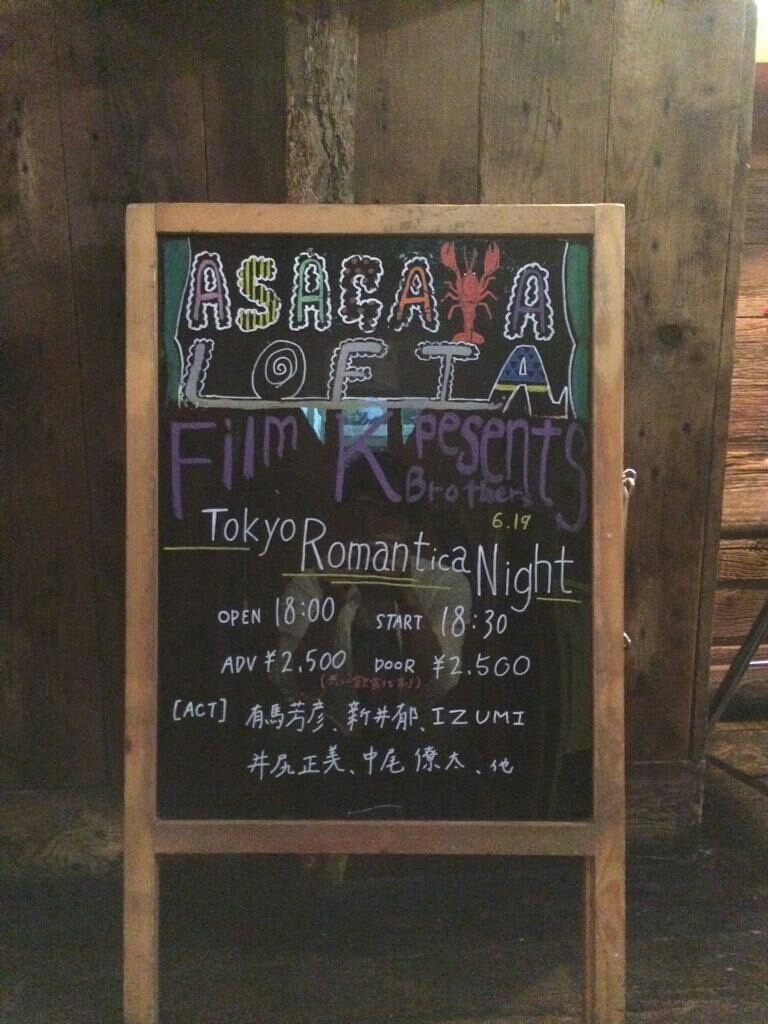 ASAGAYA
LOFT A
Film K pesents
Brothers
6.19
Tokyo Romantica Night
OPEN 18:00 START 18:30
ADV ¥2,500 DOOR ¥2,500
(共に飲食代別)
[ACT] 有馬芳彦、新井郁、IZUMI
井尻正美、中尾僚太、他